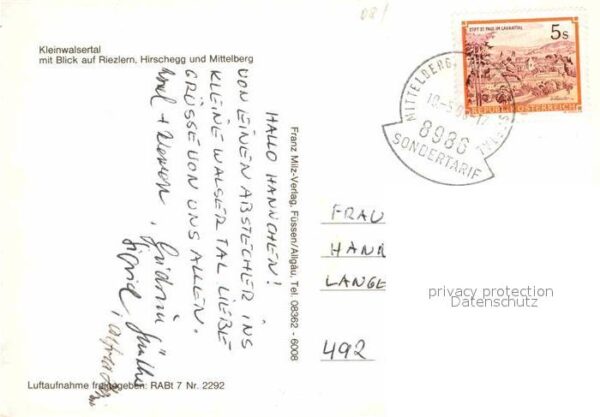 Kleinwalsertal
mit Blick auf Riezlern, Hirschegg und Mittelberg
HALLO HANNCHEN!
VON EINEN ABSTECHER INS
KLEINE WALSER TAL LIEBE
GRÜSSE VON UNS ALLEN.
Sigrid
Franz Milz-Verlag, Füssen/Allgäu, Tel. 08362 - 6008
5s
STIFT ST. PAUL IM LAVANTTAL
REPUBLIK ÖSTERREICH
MITTELBERG,
8986
SONDERTARIF
FRAU
HANN
LANGE
492
privacy protection
Datenschutz
Luftaufnahme freigegeben: RABt 7 Nr. 2292